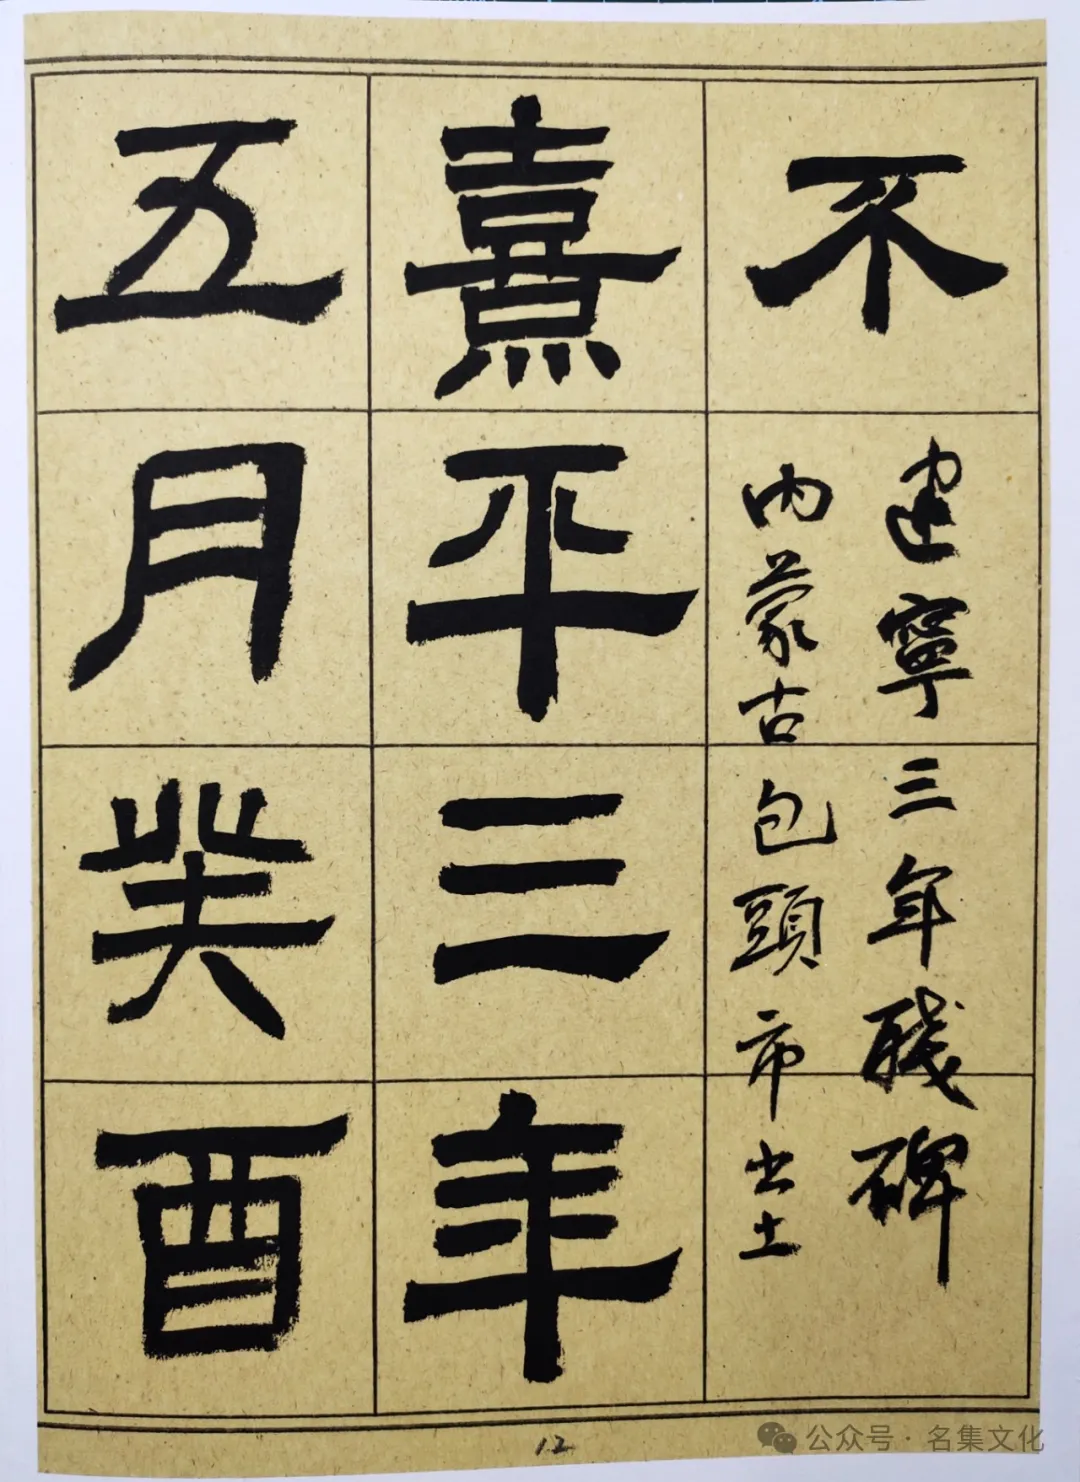 不
建寧三年殘碑
内蒙古包頭市出土
熹平三年
五月癸酉
12
公众号·名集文化